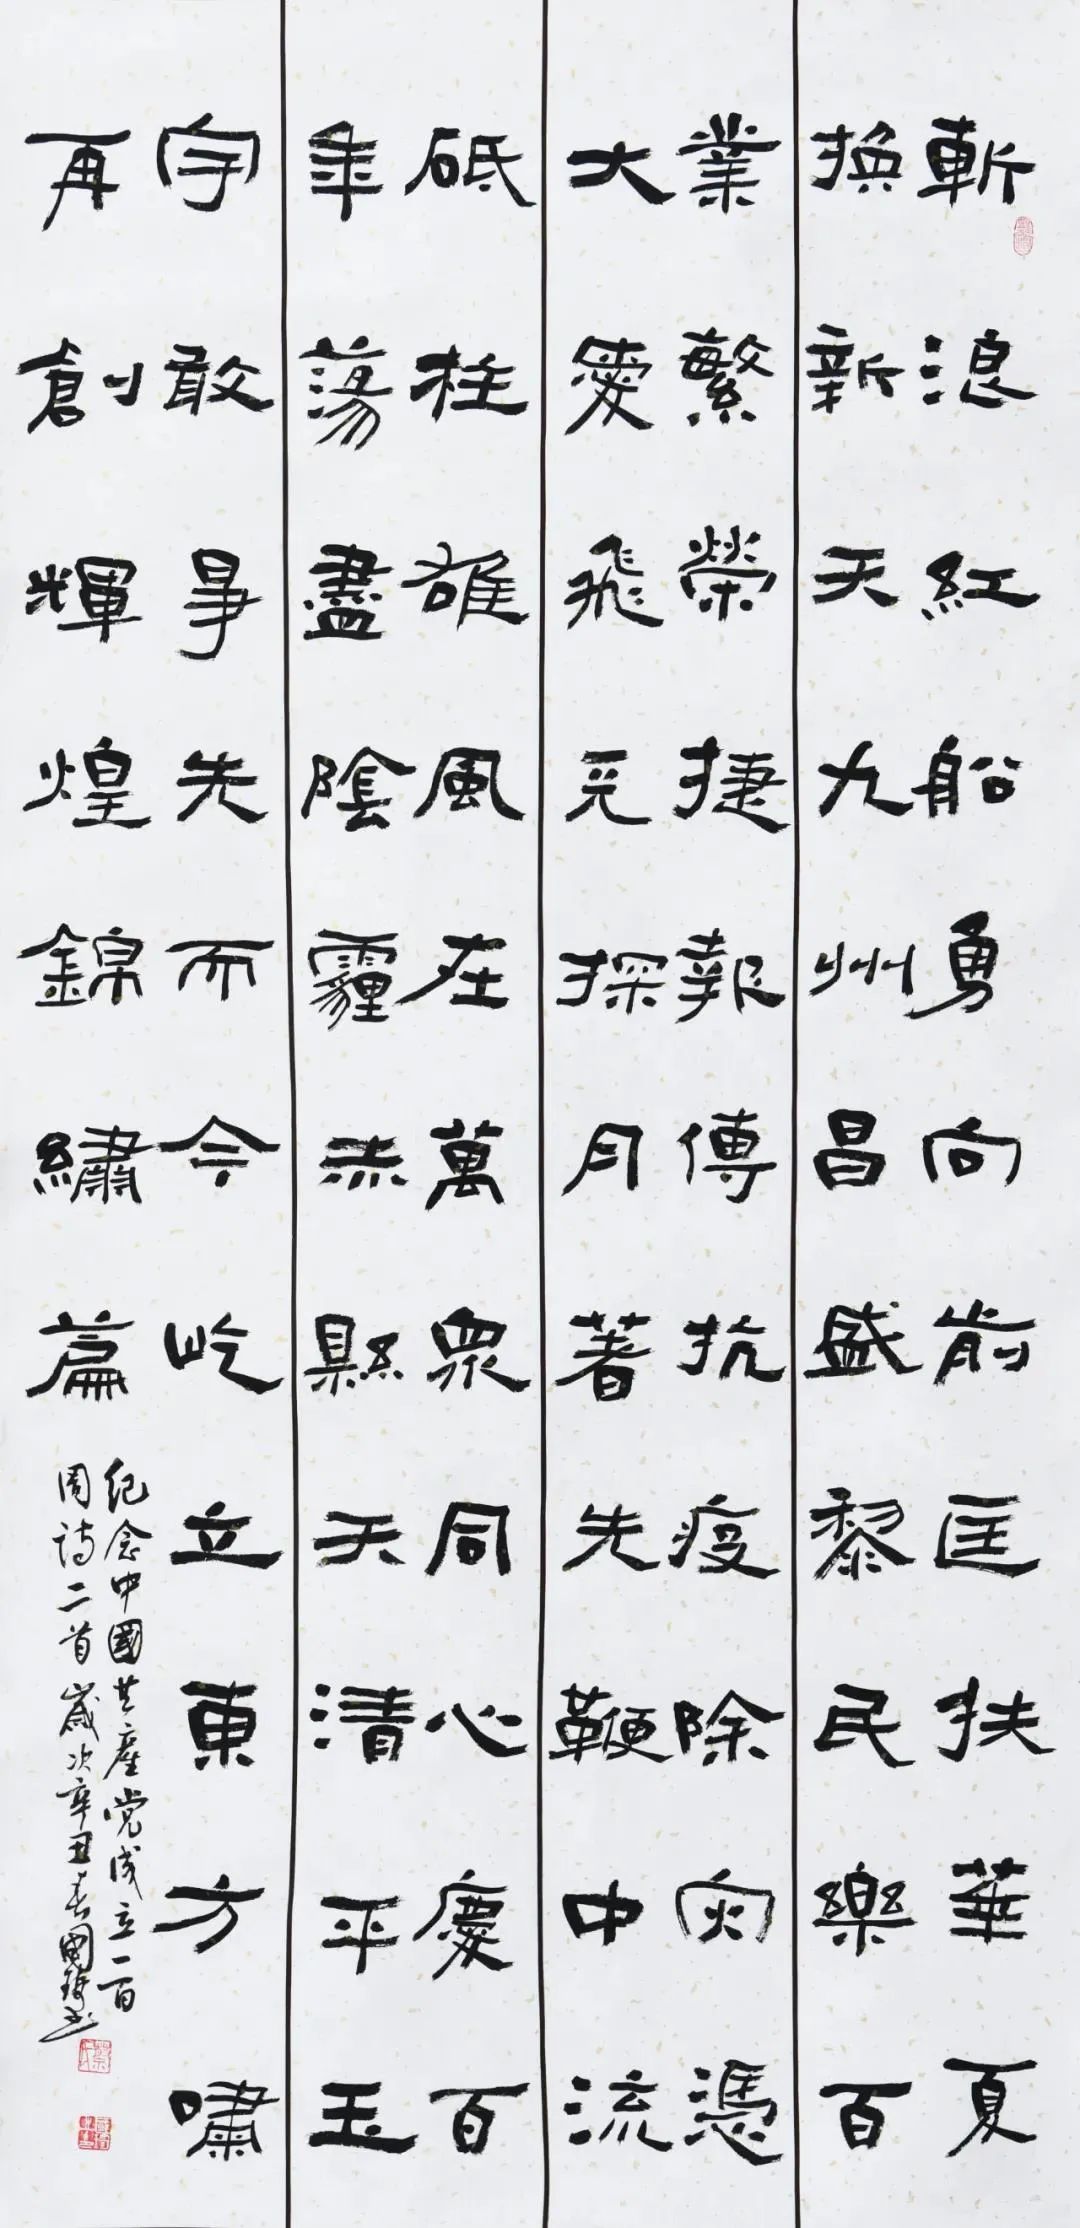 斬浪紅船勇向前匡扶華夏
換新天九州昌盛黎民樂百
業繁榮捷報傳抗疫除灾憑
大愛飛天探月著先鞭中流
砥柱雄風在萬衆同心慶百
年蕩盡陰霾赤縣天清平玉
宇敢爭先而今屹立東方嘯
再創輝煌錦繡篇
纪念中國共產党成立一百
周诗二首歲次辛丑春國